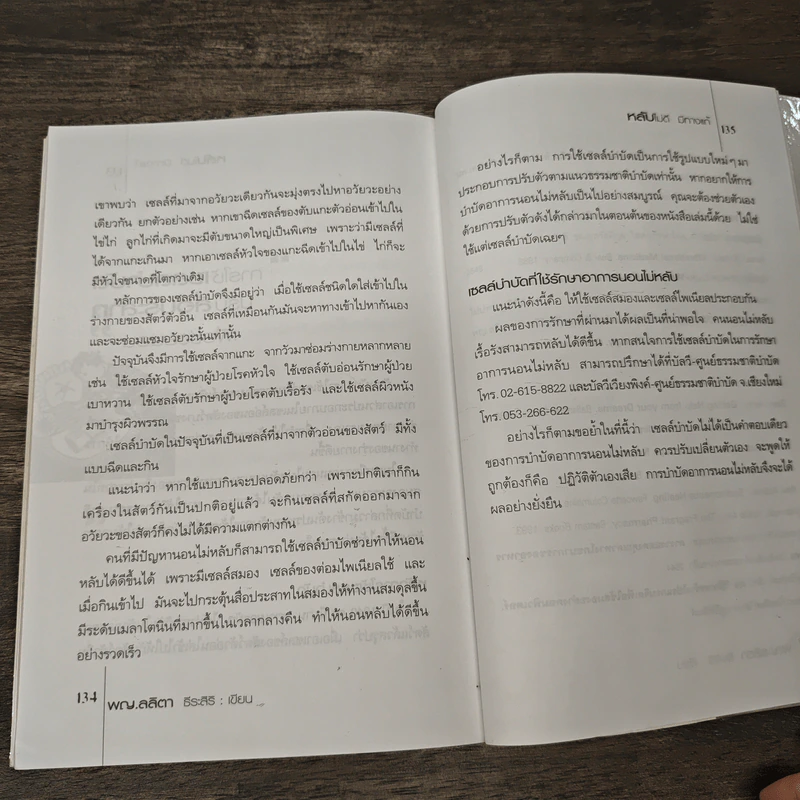 เขาพบว่า เซลล์ที่มาจากอวัยวะเดียวกันจะมุ่งตรงไปหาอวัยวะอย่าง
เดียวกัน ยกตัวอย่างเช่น หากเขาฉีดเซลล์ของตับแกะตัวอ่อนเข้าไปใน
ไข่ไก่ ลูกไก่ที่เกิดมาจะมีตับขนาดใหญ่เป็นพิเศษ เพราะว่ามีเซลล์ที่
ได้จากแกะเกินมา หากเอาเซลล์หัวใจของแกะฉีดเข้าไปในไข่ ไก่ก็จะ
มีหัวใจขนาดที่โตกว่าเดิม
หลักการของเซลล์บำบัดจึงมีอยู่ว่า เมื่อใช้เซลล์ชนิดใดใส่เข้าไปใน
ร่างกายของสัตว์ตัวอื่น เซลล์ที่เหมือนกันมันจะหาทางเข้าไปหากันเอง
และจะซ่อมแซมอวัยวะนั้นเท่านั้น
ปัจจุบันจึงมีการใช้เซลล์จากแกะ จากวัวมาซ่อมร่างกายหลากหลาย
เช่น ใช้เซลล์หัวใจรักษาผู้ป่วยโรคหัวใจ ใช้เซลล์ตับอ่อนรักษาผู้ป่วย
เบาหวาน ใช้เซลล์ตับรักษาผู้ป่วยโรคตับเรื้อรัง และใช้เซลล์ผิวหนัง
มาบำรุงผิวพรรณ
เซลล์บำบัดในปัจจุบันที่เป็นเซลล์ที่มาจากตัวอ่อนของสัตว์ มีทั้ง
แบบฉีดและกิน
แนะนำว่า หากใช้แบบกินจะปลอดภัยกว่า เพราะปกติเราก็กิน
เครื่องในสัตว์กันเป็นปกติอยู่แล้ว จะกินเซลล์ที่สกัดออกมาจาก
อวัยวะของสัตว์ก็คงไม่ได้มีความแตกต่างกัน
คนที่มีปัญหานอนไม่หลับก็สามารถใช้เซลล์บำบัดช่วยทำให้นอน
หลับได้ดีขึ้นได้ เพราะมีเซลล์สมอง เซลล์ของต่อมไพเนียลใช้ และ
เมื่อกินเข้าไป มันจะไปกระตุ้นสื่อประสาทในสมองให้ทำงานสมดุลขึ้น
มีระดับเมลาโตนินที่มากขึ้นในเวลากลางคืน ทำให้นอนหลับได้ดีขึ้น
อย่างรวดเร็ว
134 พญ.ลลิตา ธีระสิริ : เขียน
หลับไม่ดี มีทางแก้ 135
อย่างไรก็ตาม การใช้เซลล์บำบัดเป็นการใช้รูปแบบใหม่ๆ มา
ประกอบการปรับตัวตามแนวธรรมชาติบำบัดเท่านั้น หากอยากให้การ
บำบัดอาการนอนไม่หลับเป็นไปอย่างสมบูรณ์ คุณจะต้องช่วยตัวเอง
ด้วยการปรับตัวดังได้กล่าวมาในตอนต้นของหนังสือเล่มนี้ด้วย ไม่ใช่
ใช้แต่เซลล์บำบัดเฉยๆ
เซลล์บำบัดที่ใช้รักษาอาการนอนไม่หลับ
แนะนำดังนี้คือ ให้ใช้เซลล์สมองและเซลล์ไพเนียลประกอบกัน
ผลของการรักษาที่ผ่านมาได้ผลเป็นที่น่าพอใจ คนนอนไม่หลับ
เรื้อรังสามารถหลับได้ดีขึ้น หากสนใจการใช้เซลล์บำบัดในการรักษา
อาการนอนไม่หลับ สามารถปรึกษาได้ที่บัลวี-ศูนย์ธรรมชาติบำบัด
โทร. 02-615-8822 และบัลวีเวียงพิงค์-ศูนย์ธรรมชาติบำบัด จ.เชียงใหม่
โทร. 053-266-622
อย่างไรก็ตามขอย้ำในที่นี้ว่า เซลล์บำบัดไม่ได้เป็นคำตอบเดียว
ของการบำบัดอาการนอนไม่หลับ ควรปรับเปลี่ยนตัวเอง จะพูดให้
ถูกต้องก็คือ ปฏิวัติตัวเองเสีย การบำบัดอาการนอนไม่หลับจึงจะได้
ผลอย่างยั่งยืน